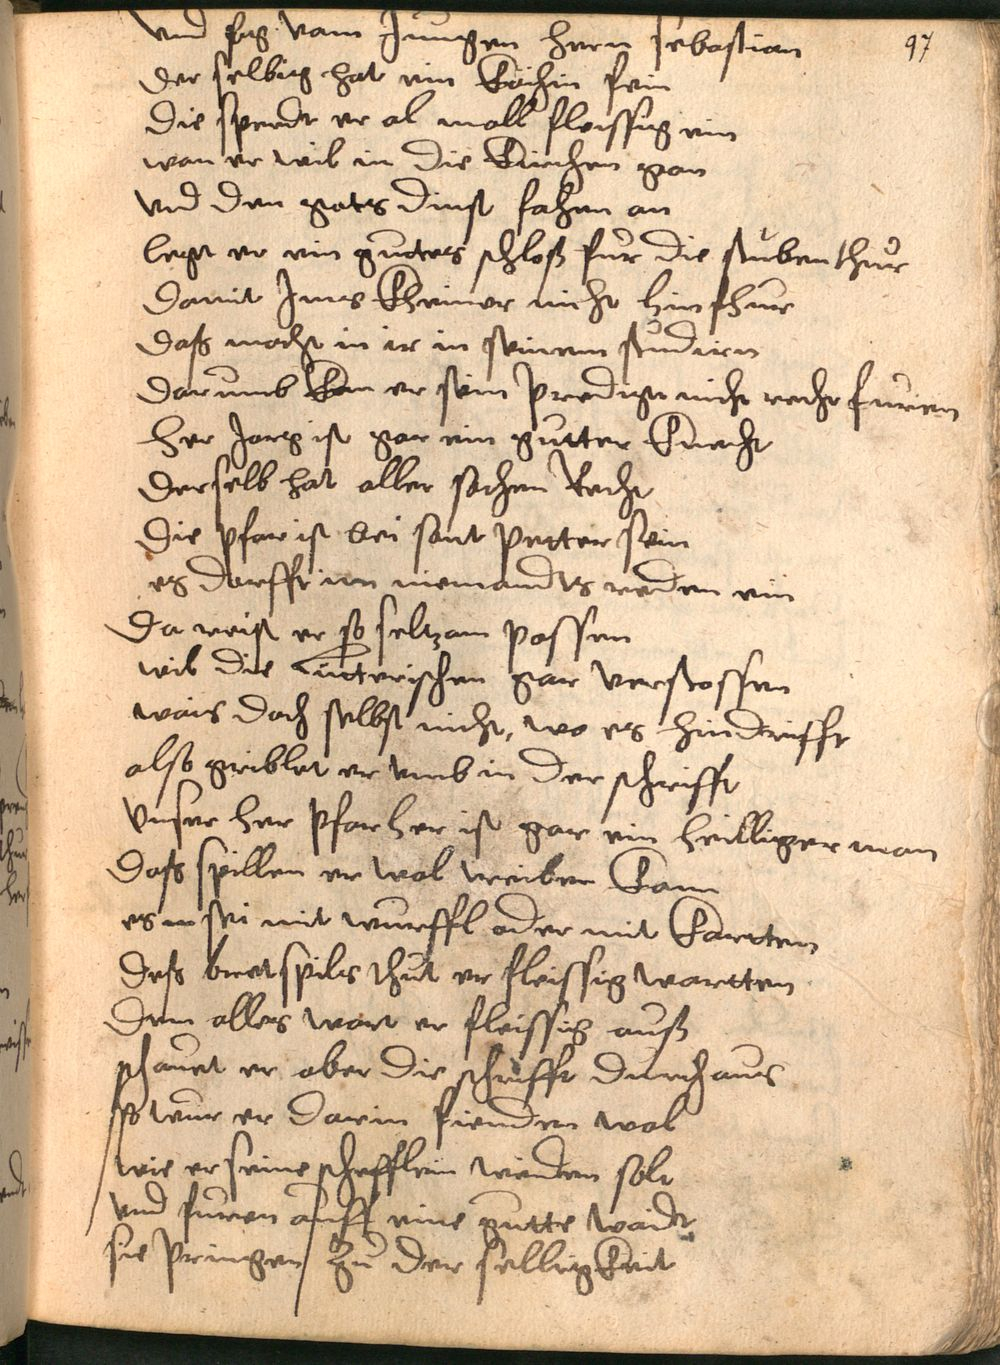 97
vnd sag vam Jungen hern sebastian
der selbig hat ein Köchin fein
die sperdt er al mall fleissig ein
wan er wil in die Kirchen gan
vnd den gotts dinst fahen an
legt er ein guttes schloß fur die stuben thur
damit Jms Kheiner nicht hin fhur
daß macht in ir in seinem studirn
darumb Kan er sein predigt nicht recht furen
her Jorg ist gar ein gutter Knecht
derselb hat aller sachen Recht
die pfar ist bei sant petter sein
es darfft im niemandts reden ein
da reist er so seltzam possen
wil die Lutterischen gar verstossen
wais doch selbst nicht, wo es hindrifft
also griblet er vmb in der schrifft
vnser her pfarher ist gar ein heilliger man
daß spillen er wol treiben Kann
es sei mit wurffl oder mit Kartten
deß bretspils thut er fleissig wartten
dem alles wart er fleissig auß
schauet er aber die schrifft durchaus
so wur er darin finden wol
wie er seine schefflein weiden solt
vnd furen auff eine gutte waidt
sie pringen zu der selligKeit